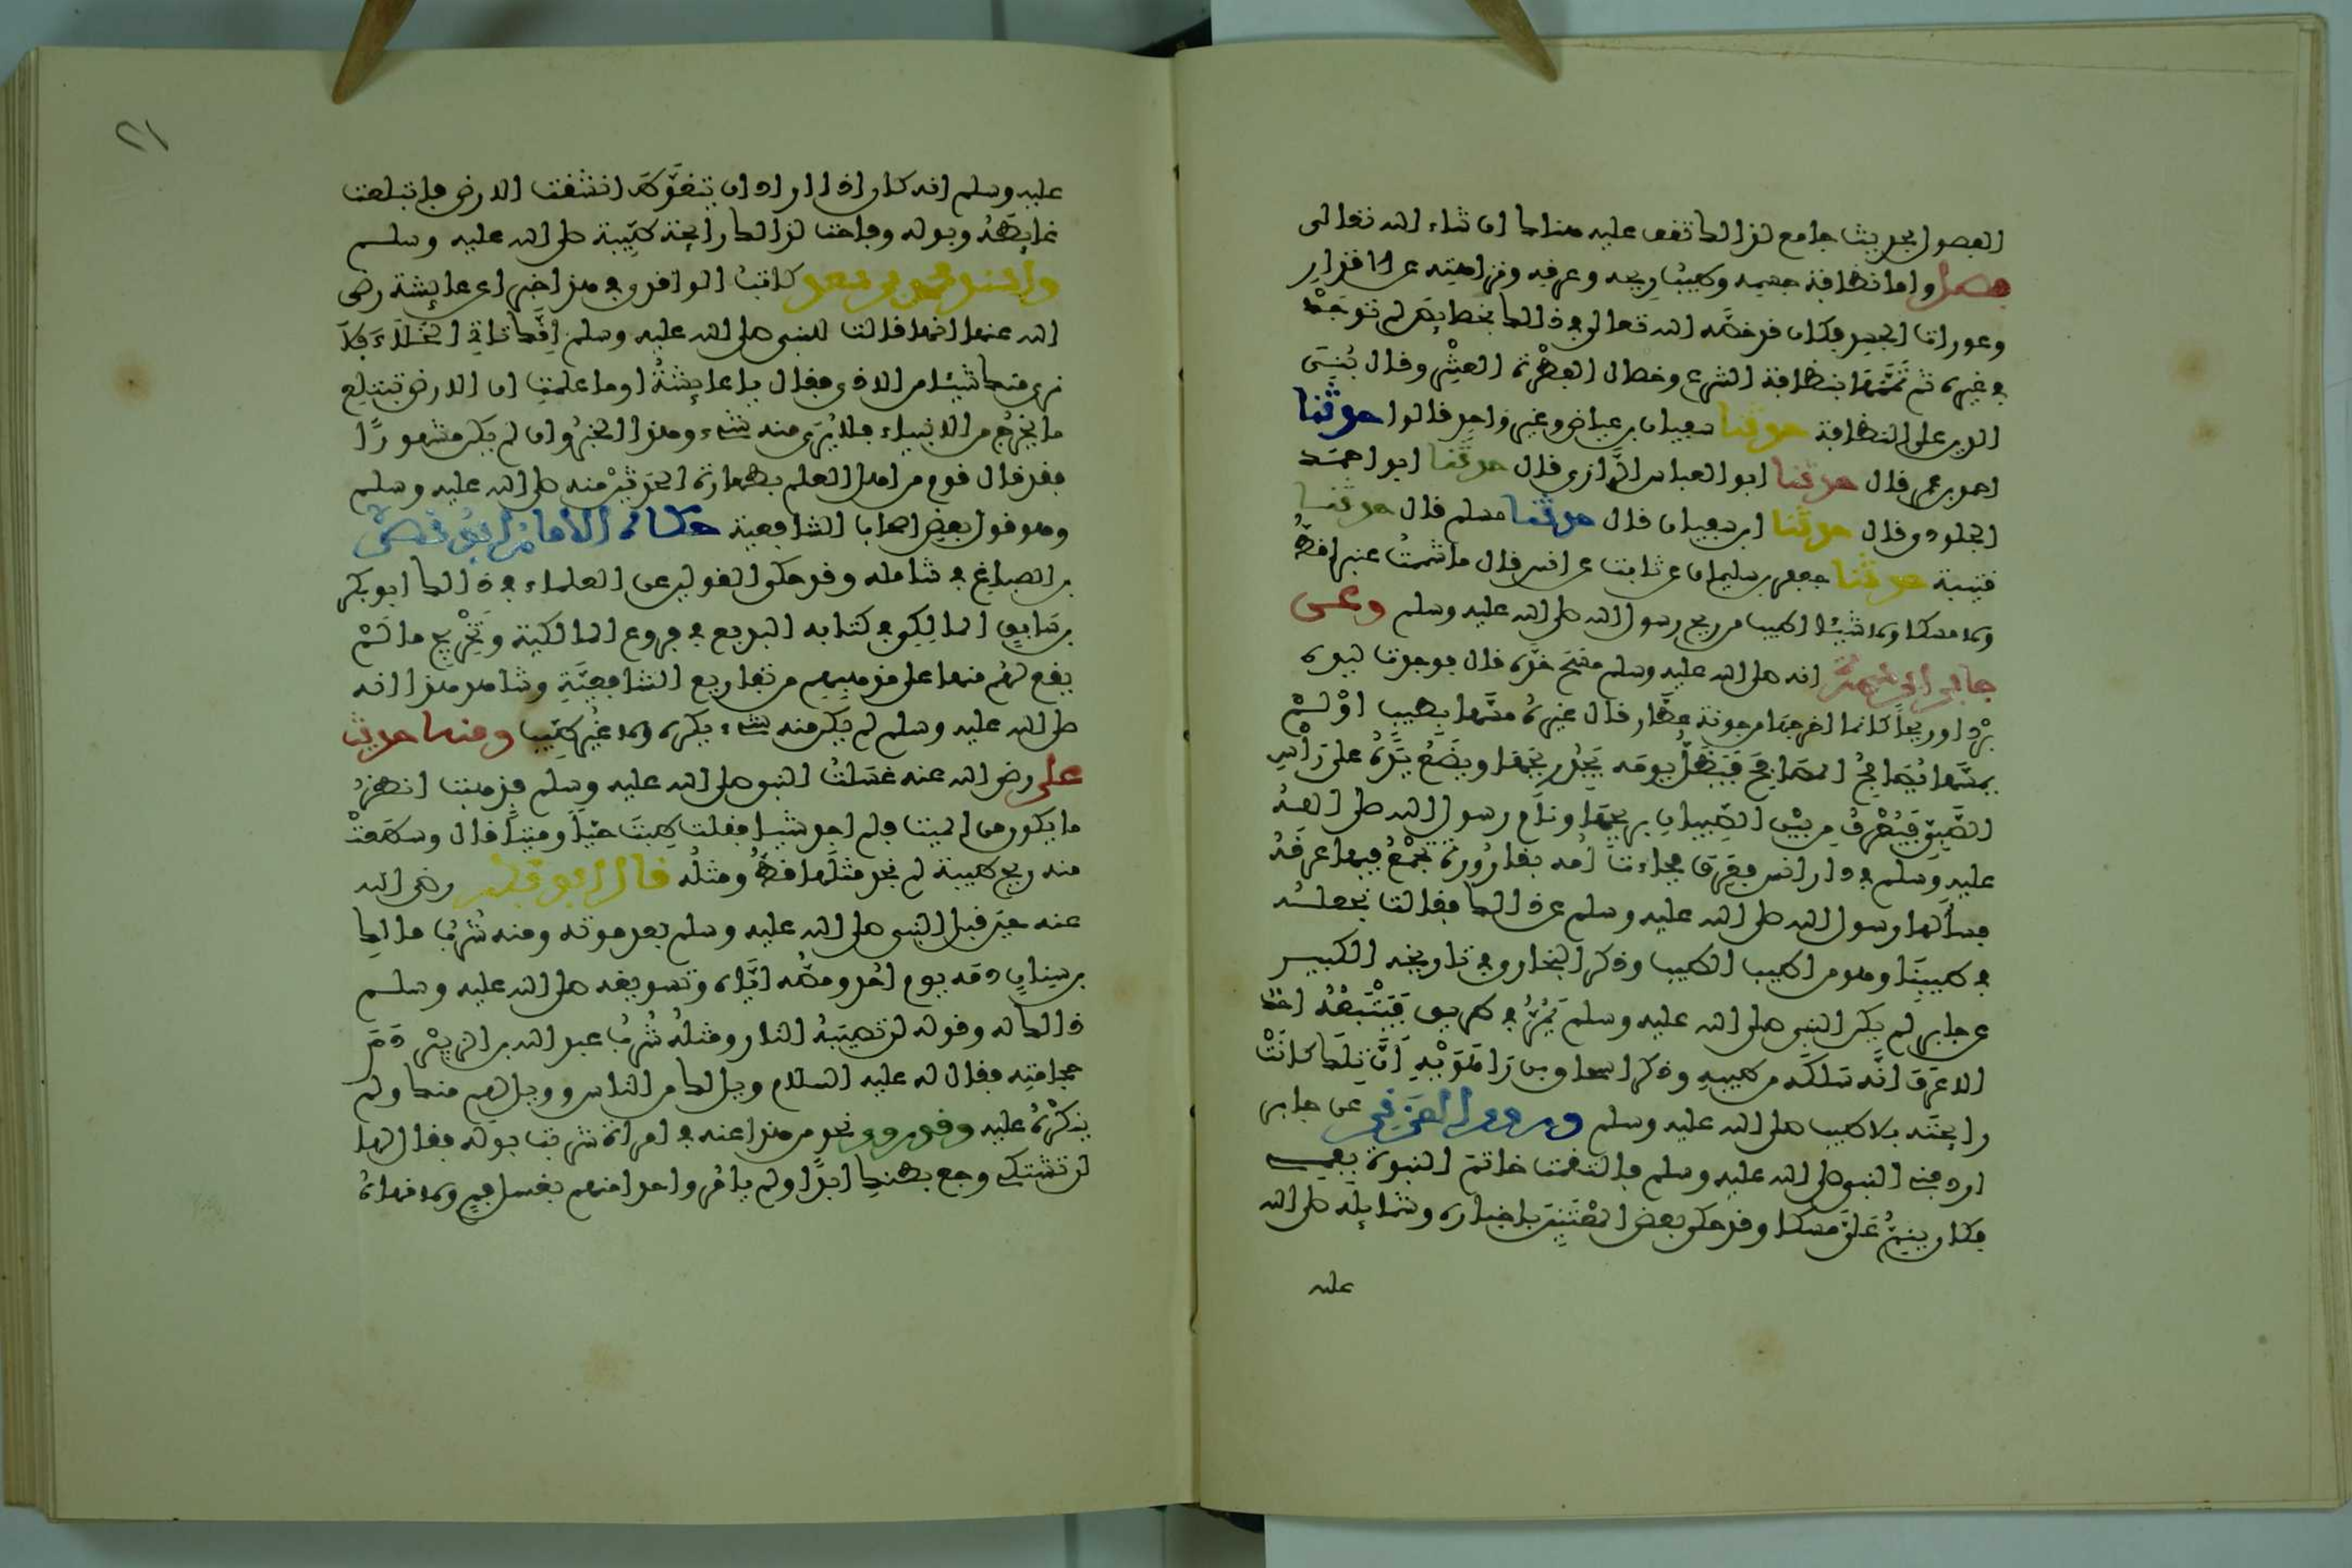 الفصول بحديث جامع لذالك تقف عليه هنالك ان شاء الله تعالى
فصل واما نظافة جسمه وطيب ريحه وعرفه ونزاهته عن الاقذار
وعورات الجسد فكان قد خصّه الله تعالى في ذالك بخصايص لم توجد
في غيره ثم تَمَّمَها بنظافة الشرع وخصال الفِطْرة العشْر وقال بُنِيَ
الدين على النظافة حدثنا سفيان بن عياض وغير واحد قالوا حدثنا
احمد بن عمر قال حدثنا ابو العباس الرَّازي قال حدثنا ابو احمد
الجلودي قال حدثنا ابن سفيان قال حدثنا مسلم قال حدثنا
قتيبة حدثنا جعفر بن سليمان عن ثابت عن انس قال ما شممتُ عنبرا قطُّ
ولا مسكا ولا شيئا اطيب من ريح رسول الله صلى الله عليه وسلم وعن
جابر ابن سمرة انه صلى الله عليه وسلم مسَح خدَّه قال فوجدت ليده
بَرْدا وريحاً كانما اخرجها من جونة عطَّار قال غيره مسَّها بطيب اوْ لمْ
يمسَّها يُصافِحُ المصافِحَ فيَظلُّ يومَه يَجِدُ ريحَها ويضَعُ يَدَهُ على رَأْسِ
الصَّبِيِّ فيُعْرفُ مِن بيْن الصِّبيانِ بريحها ونام رسول الله صلى الله
عليه وسلم في دار انس فعَرِقَ فجاءت أمه بقارُورة تجْمَعُ فيها عرَقَهُ
فسألها رسول الله صلى الله عليه وسلم عن ذالك فقالت نجعلُه
في طيبِنَا وهو من اطيب الطيب وذكر البخاري في تاريخه الكبير
عن جابر لم يكن النبي صلى الله عليه وسلم يَمُرُّ في طريق فيَتْبَعُهُ احد
الا عرَفَ انَّه سَلكَه من طيبِهِ وذكر اسحاق بن رَاهَوَيْهِ أنَّ تِلكَ كانَتْ
رايحَتَه بلا طيب صلى الله عليه وسلم وروى المُزَني عن جابر
اردفني النبي صلى الله عليه وسلم فالتقمت خاتم النبوة بفمي
فكان ينِمُّ عَليَّ مسكا وقد حكى بعض المُعْتَنِينَ باخباره وشمايله صلى الله
عليه
٢١
عليه وسلم انه كان اذا اراد ان يتغوَّط انشقت الارض فابتلعت
غايِطَهُ وبوله وفاحت لذالك رايحة طيِّبة صلى الله عليه وسلم
واسند محمد بن سعد كاتب الواقدي في هذا خبرا عن عايشة رضي
الله عنها انها قالت للنبي صلى الله عليه وسلم إنَّك تاتي الخَلاءَ فلا
نرى منك شيئا من الاذى فقال يا عايشةُ اوما علمتِ ان الارض تبتلع
ما يَخْرُج من الانبياء فلا يُرَى منه شيء وهذا الخبر وان لم يكن مشهورًا
فقد قال قوم من اهل العلم بطهارة الحَدَثَيْن منه صلى الله عليه وسلم
وهو قول بعض اصحاب الشافعية حكاه الامام ابو نصر
بن الصباغ في شامله وقد حكى القولين عن العلماء في ذالك ابو بكر
بن سَابِق المالِكي في كتابه البديع في فروع المالكية وتَخْريج ما لمْ
يقع لهُم منها على مذهبهم من تفاريع الشافعِيَّةِ وشاهد هذا انه
صلى الله عليه وسلم لم يكن منه شيء يكره ولا غيْر طيِّب ومنه حديث
علي رضي الله عنه غسَّلتُ النبي صلى الله عليه وسلم فذهبت انظرُ
ما يكون من الميت فلم اجد شيئا فقلت طِبتَ حيًّا وميتاً قال وسطَعتْ
منه ريح طيبة لم نجد مثلَها قطُّ ومثلُه قال ابو بكر رضي الله
عنه حين قبل النبي صلى الله عليه وسلم بعد موته ومنه شُرْبُ مالك
بن سِنانٍ دمَه يوم احُدٍ ومصُّه ايَّاه وتسويغه صلى الله عليه وسلم
ذالك له وقوله لن تصيبَهُ النار ومثلُهُ شُرْبُ عبد الله بن الزبيْر دَمَ
حجامتِه فقال له عليه السلام ويل لك من الناس وويل لهم منك ولم
ينكرْهُ عليه وقد روي نحو من هذا عنه في امرأة شربت بوله فقال لها
لن تشتكي وجع بطنكِ ابدًا ولم يامُر واحدا منهم بغسل فمٍ ولا نهاهُ